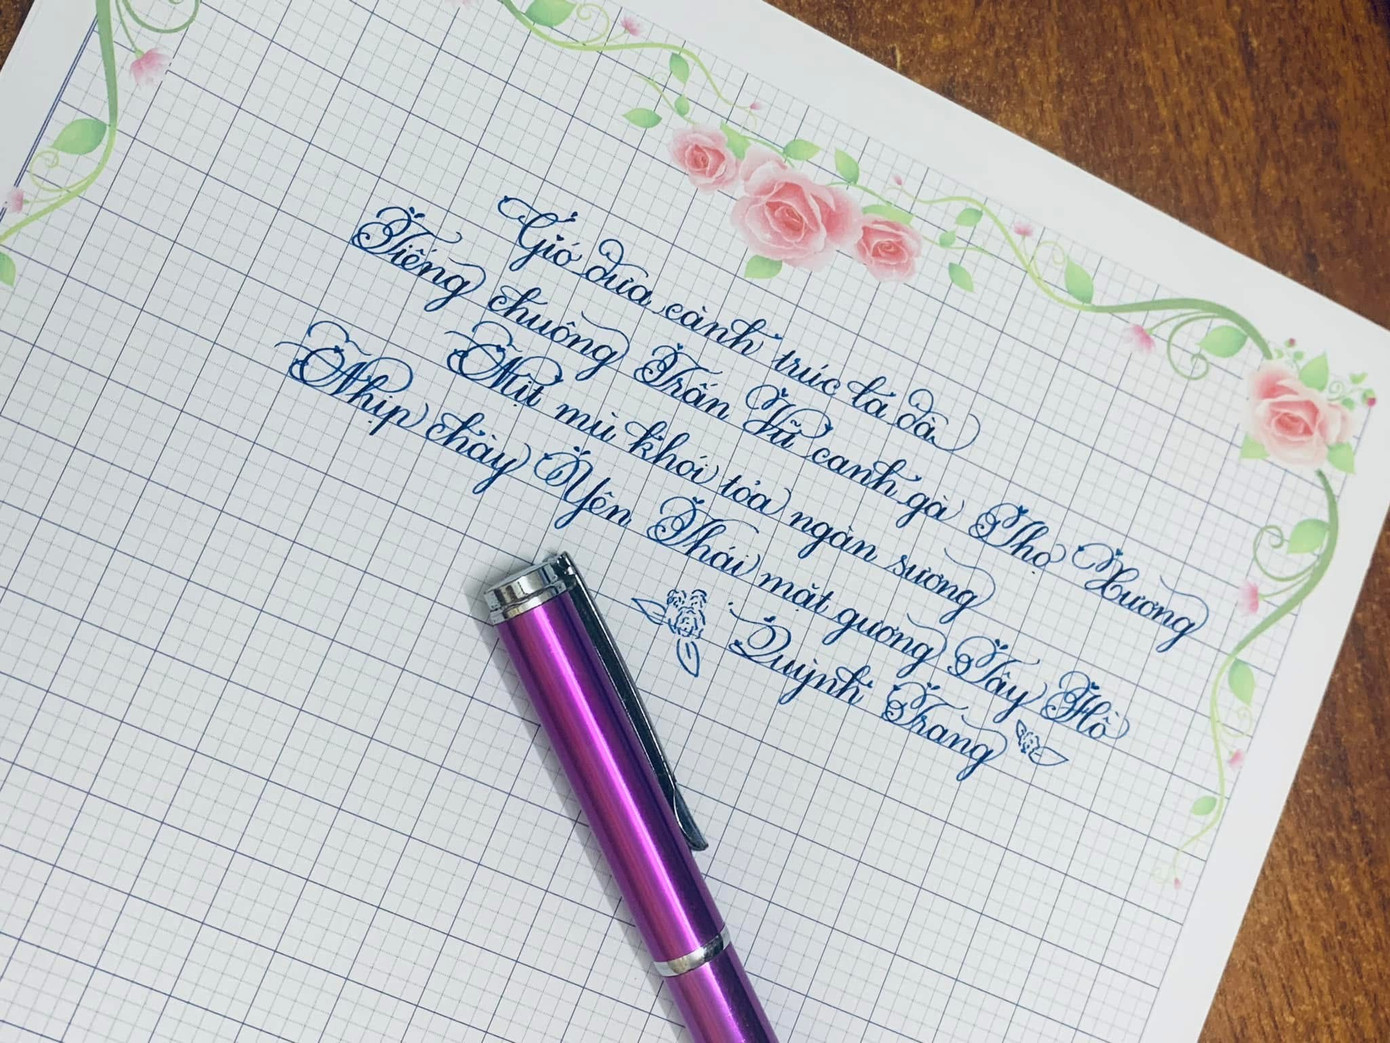 Gió đưa cành trúc la đà
Tiếng chuông Trấn Vũ canh gà Thọ Xương
Mịt mù khói tỏa ngàn sương
Nhịp chày Yên Thái mặt gương Tây Hồ
Quỳnh Trang